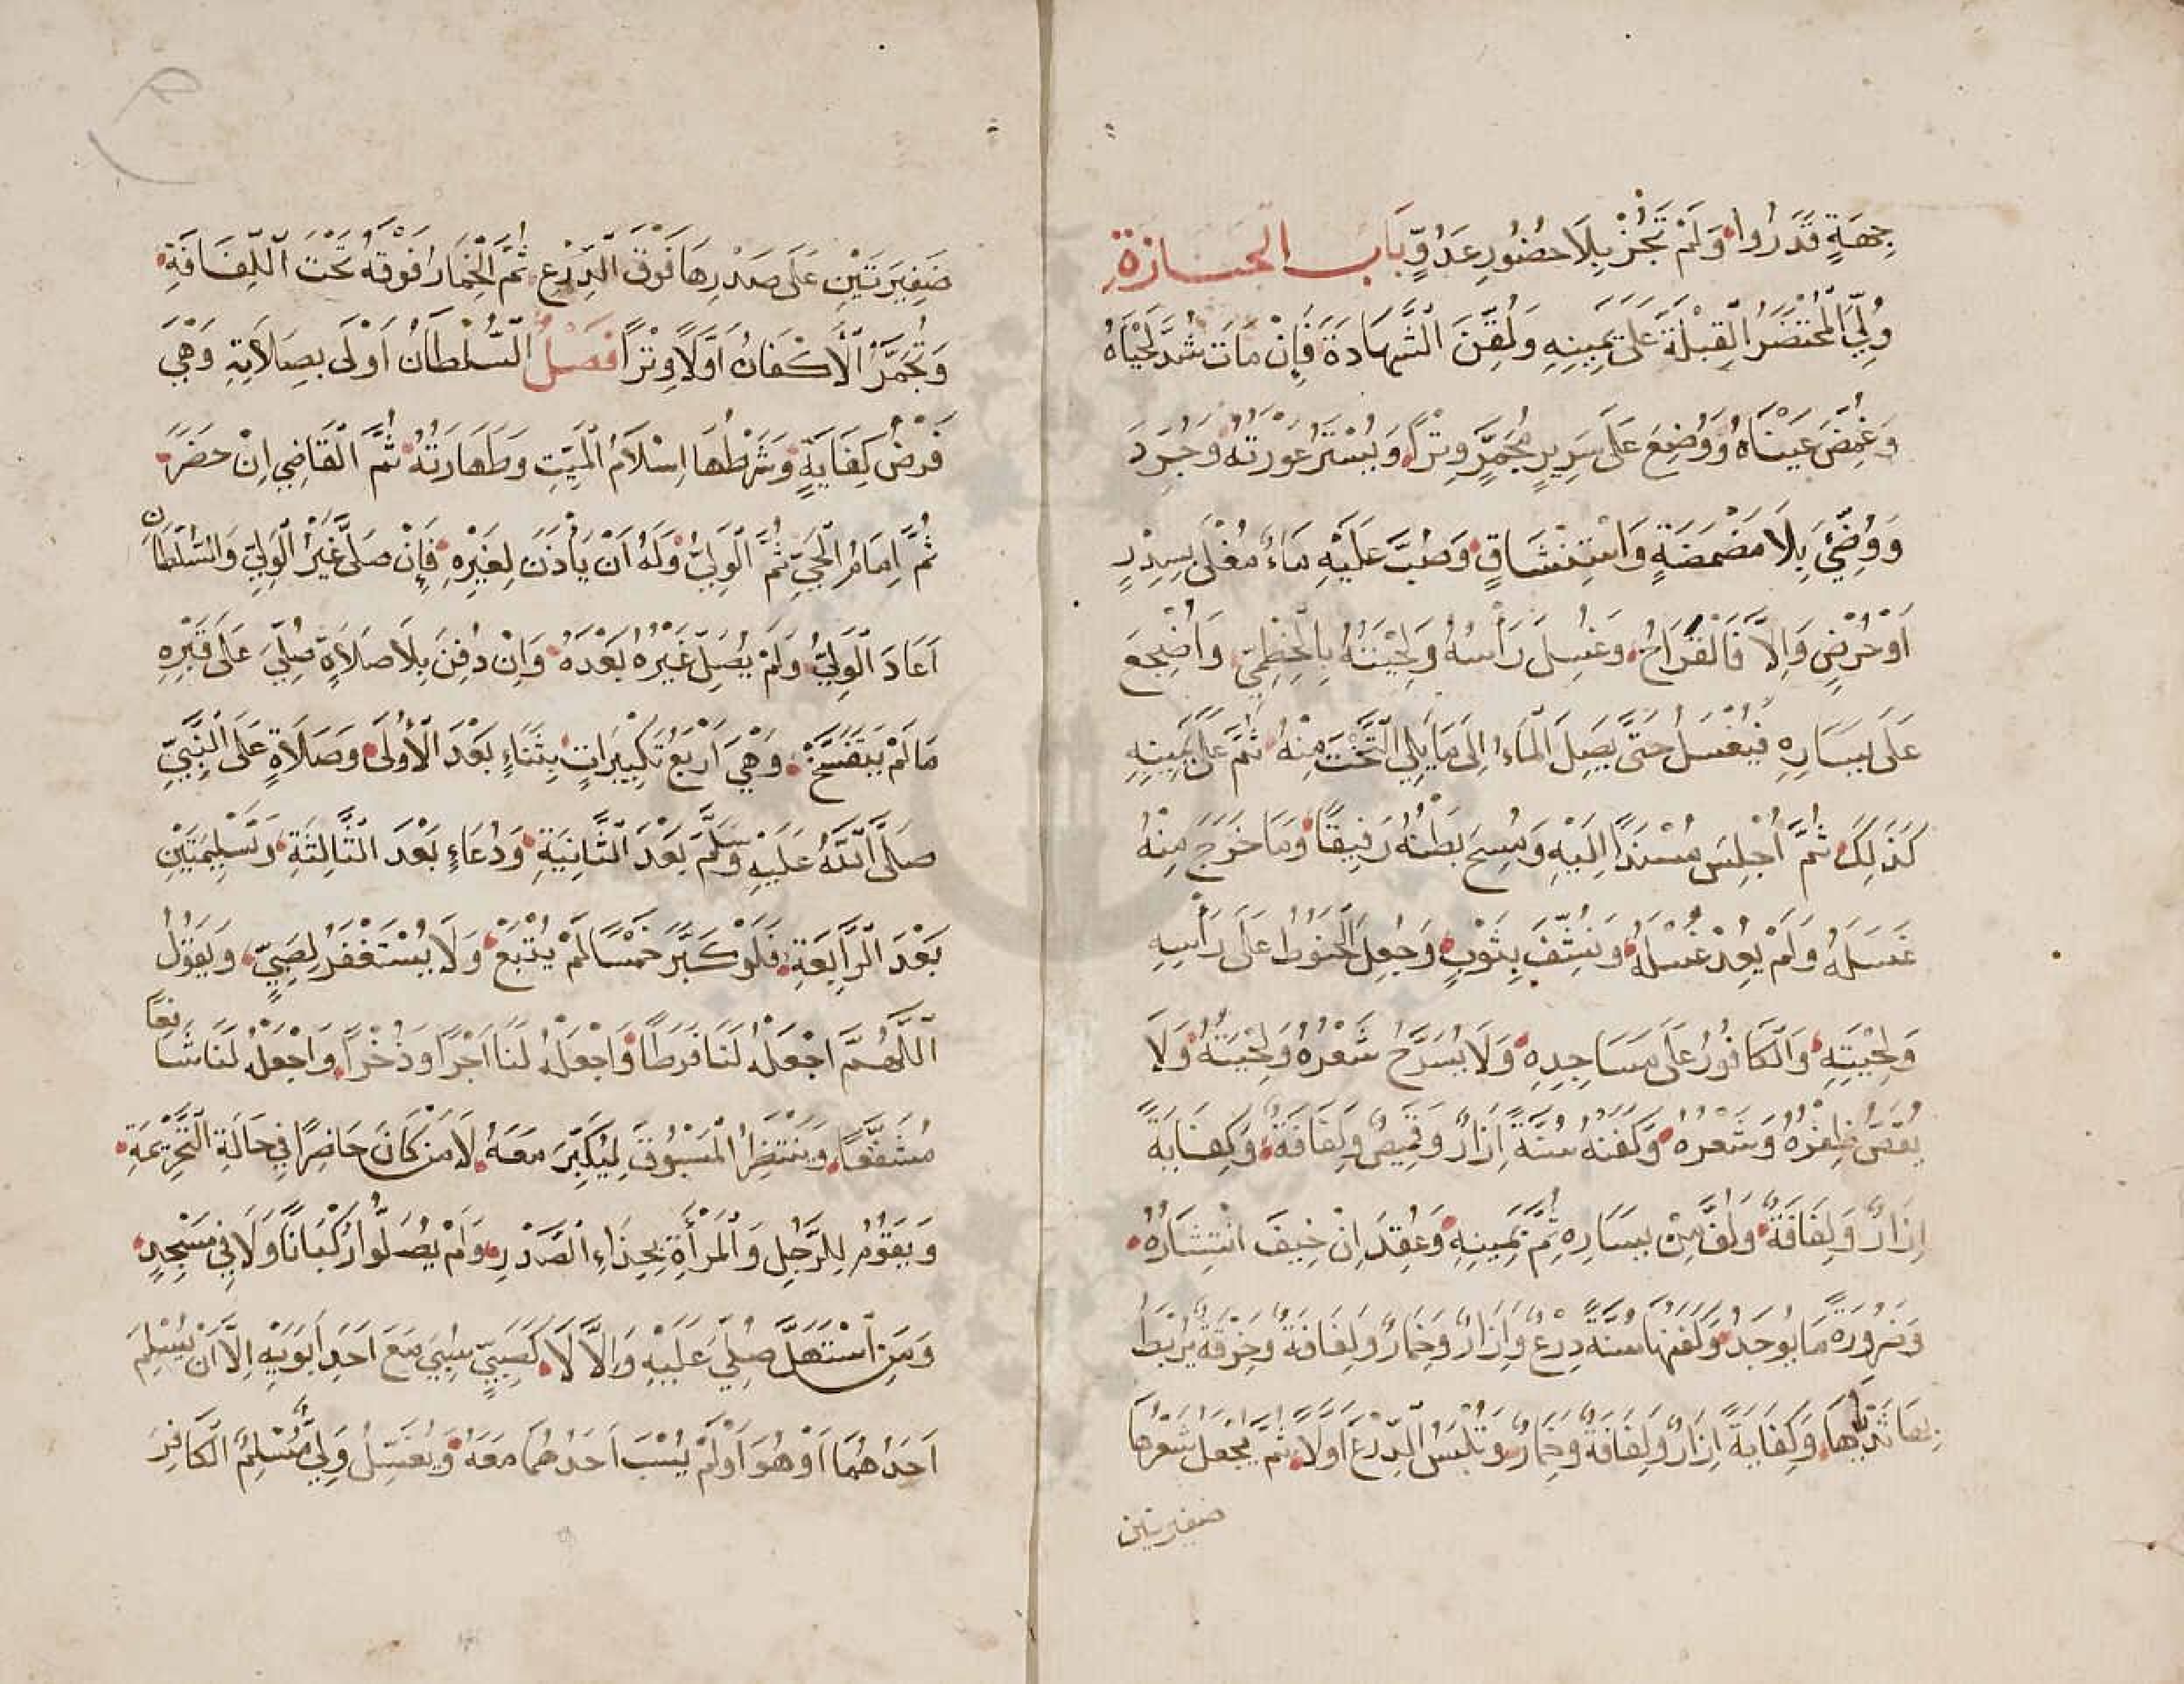 جِهَةٍ قَدَرُوا وَلَمْ تَجُزْ بِلَا حُضُورِ عَدُوٍّ بَابُ الْجَنَازَةِ
وُلِّيَ الْمُحْتَضَرُ الْقِبْلَةَ عَلَى يَمِينِهِ وَلُقِّنَ الشَّهَادَةَ فَإِنْ مَاتَ شُدَّ لَحْيَاهُ
وَغُمِّضَ عَيْنَاهُ وَوُضِعَ عَلَى سَرِيرٍ مُجَمَّرٍ وِتْرًا وَيُسْتَرُ عَوْرَتُهُ وَجُرِّدَ
وَوُضِّئَ بِلَا مَضْمَضَةٍ وَاسْتِنْشَاقٍ وَصُبَّ عَلَيْهِ مَاءٌ مُغْلًى بِسِدْرٍ
أَوْ حُرْضٍ وَإِلَّا فَالْقَرَاحُ وَغُسِلَ رَأْسُهُ وَلِحْيَتُهُ بِالْخِطْمِيِّ وَأُضْجِعَ
عَلَى يَسَارِهِ فَيُغْسَلُ حَتَّى يَصِلَ الْمَاءُ إِلَى مَا يَلِي التَّخْتَ مِنْهُ ثُمَّ عَلَى يَمِينِهِ
كَذَلِكَ ثُمَّ أُجْلِسَ مُسْنَدًا إِلَيْهِ وَمُسِحَ بَطْنُهُ رَفِيقًا وَمَا خَرَجَ مِنْهُ
غَسَلَهُ وَلَمْ يُعِدْ غُسْلَهُ وَنُشِّفَ بِثَوْبٍ وَجُعِلَ الْحَنُوطُ عَلَى رَأْسِهِ
وَلِحْيَتِهِ وَالْكَافُورُ عَلَى مَسَاجِدِهِ وَلَا يُسَرَّحُ شَعْرُهُ وَلِحْيَتُهُ وَلَا
يُقَصُّ ظِفْرُهُ وَشَعْرُهُ وَكَفَنُهُ سُنَّةً إِزَارٌ وَقَمِيصٌ وَلِفَافَةٌ وَكِفَايَةً
إِزَارٌ وَلِفَافَةٌ وَلُفَّ مِنْ يَسَارِهِ ثُمَّ يَمِينِهِ وَعُقِدَ إِنْ خِيفَ انْتِشَارُهُ
وَضَرُورَةً مَا يُوجَدُ وَكَفَنُهَا سُنَّةً دِرْعٌ وَإِزَارٌ وَخِمَارٌ وَلِفَافَةٌ وَخِرْقَةٌ يُرْبَطُ
بِهَا ثَدْيَاهَا وَكِفَايَةً إِزَارٌ وَلِفَافَةٌ وَخِمَارٌ وَتُلْبَسُ الدِّرْعَ أَوَّلًا ثُمَّ يُجْعَلُ شَعْرُهَا
ضفيرتين
ضَفِيرَتَيْنِ عَلَى صَدْرِهَا فَوْقَ الدِّرْعِ ثُمَّ الْخِمَارُ فَوْقَهُ تَحْتَ اللِّفَافَةِ
وَتُجَمَّرُ الْأَكْفَانُ أَوَّلًا وِتْرًا فَصْلٌ السُّلْطَانُ أَوْلَى بِصَلَاتِهِ وَهِيَ
فَرْضُ كِفَايَةٍ وَشَرْطُهَا إِسْلَامُ الْمَيِّتِ وَطَهَارَتُهُ ثُمَّ الْقَاضِي إِنْ حَضَرَ
ثُمَّ إِمَامُ الْحَيِّ ثُمَّ الْوَلِيُّ وَلَهُ أَنْ يَأْذَنَ لِغَيْرِهِ فَإِنْ صَلَّى غَيْرُ الْوَلِيِّ وَالسُّلْطَانِ
أَعَادَ الْوَلِيُّ وَلَمْ يُصَلِّ غَيْرُهُ بَعْدَهُ وَإِنْ دُفِنَ بِلَا صَلَاةٍ صُلِّيَ عَلَى قَبْرِهِ
مَا لَمْ يَتَفَسَّخْ وَهِيَ أَرْبَعُ تَكْبِيرَاتٍ بِثَنَاءٍ بَعْدَ الْأُولَى وَصَلَاةٍ عَلَى النَّبِيِّ
صَلَّى اللَّهُ عَلَيْهِ وَسَلَّمَ بَعْدَ الثَّانِيَةِ وَدُعَاءٍ بَعْدَ الثَّالِثَةِ وَتَسْلِيمَتَيْنِ
بَعْدَ الرَّابِعَةِ فَلَوْ كَبَّرَ خَمْسًا لَمْ يُتْبَعْ وَلَا يُسْتَغْفَرُ لِصَبِيٍّ وَيَقُولُ
اللَّهُمَّ اجْعَلْهُ لَنَا فَرَطًا وَاجْعَلْهُ لَنَا أَجْرًا وَذُخْرًا وَاجْعَلْهُ لَنَا شَافِعًا
مُشَفَّعًا وَيَنْتَظِرُ الْمَسْبُوقُ لِيُكَبِّرَ مَعَهُ لَا مَنْ كَانَ حَاضِرًا فِي حَالَةِ التَّحْرِيمَةِ
وَيَقُومُ لِلرَّجُلِ وَالْمَرْأَةِ بِحِذَاءِ الصَّدْرِ وَلَمْ يُصَلُّوا رُكْبَانًا وَلَا فِي مَسْجِدٍ
وَمَنِ اسْتَهَلَّ صُلِّيَ عَلَيْهِ وَإِلَّا لَا كَصَبِيٍّ سُبِيَ مَعَ أَحَدِ أَبَوَيْهِ إِلَّا أَنْ يُسْلِمَ
أَحَدُهُمَا أَوْ هُوَ أَوْ لَمْ يُسْبَ أَحَدُهُمَا مَعَهُ وَيُغَسِّلُ وَلِيٌّ مُسْلِمٌ الْكَافِرَ